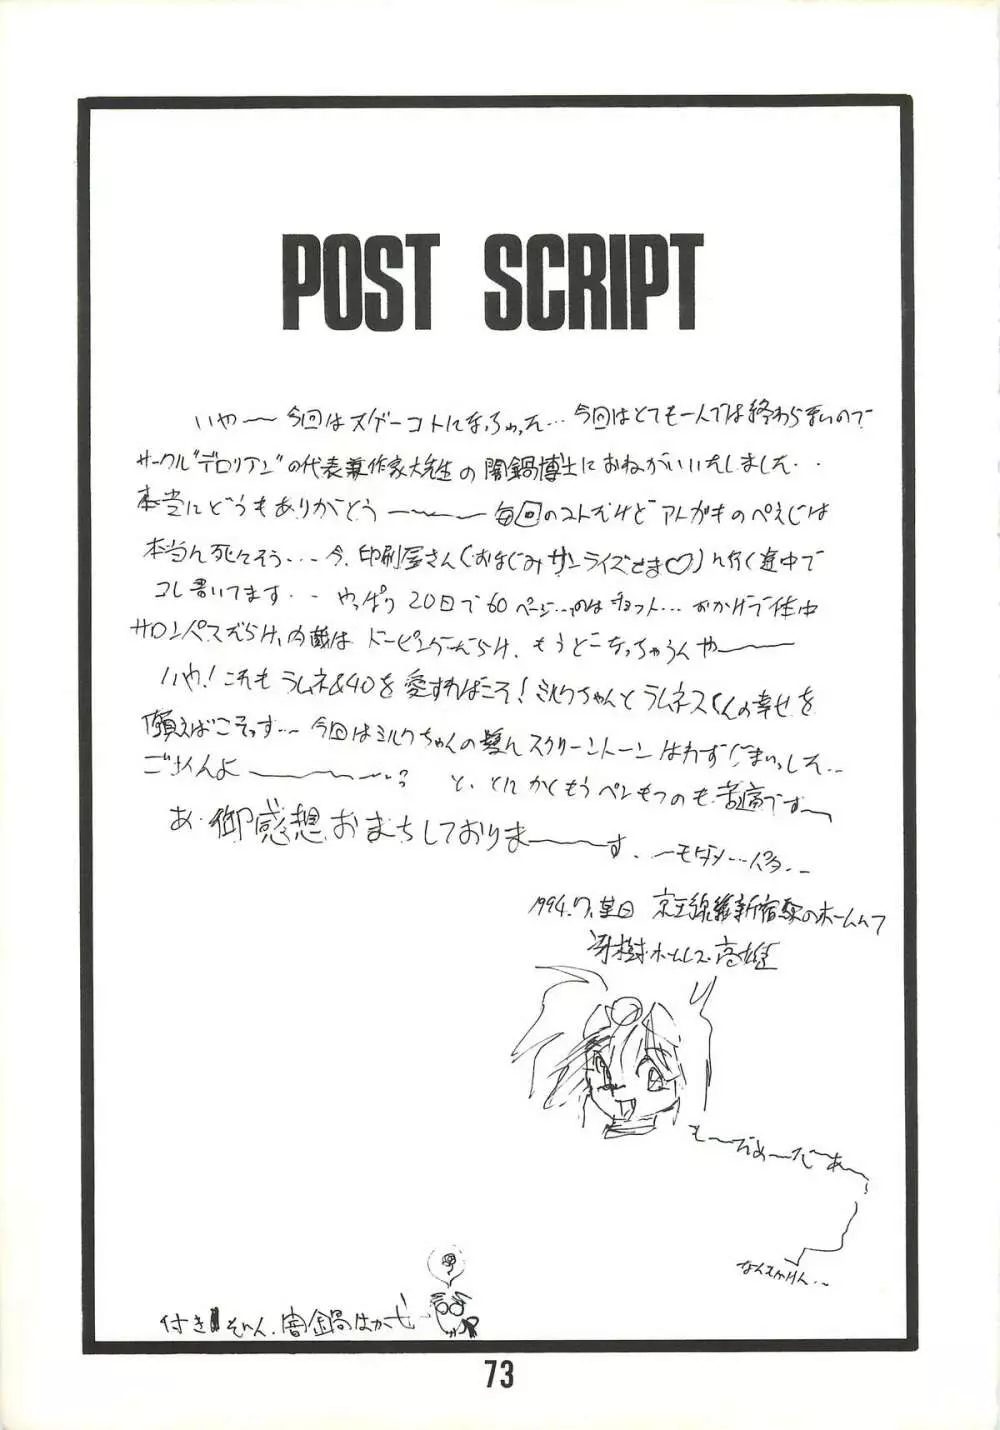 POST SCRIPT
いやー 今回はスゲーコトになっちゃった…今回はとても一人では終わらないので
サークル"デロリアン"の代表兼作家大先生の闇鍋博士におねがいいたしました・・
本当にどうもありがとうーーー毎回のコトだけどアトガキのぺえじは
本当に死にそう...今、印刷屋さん(おなじみサンライズさま♡)に行く途中で
コレ書いてます・・やっぱり20日で60ページ...のはチョット...おかげで体中
サロンパスだらけ、内蔵はドーピングだらけ、もうどーなっちゃうんやーーー
いや!これもラムネ&40を愛すればこそ!ミルクちゃんとラムネスくんの幸せを
願えばこそっす... 今回はミルクちゃんの髪んスクリーントーンはわすじまいっした..
ごみんよーーー? と、とにかくもうペンもつのも苦痛ですー
あ・御感想おまちしておりまーーーす.
1994.7. 京王線 新宿駅のホームにて
冴樹・ホームレス・高雄
もーだめーだーあー
なんもかけん...
付きそい人、闇鍋はかせ
73